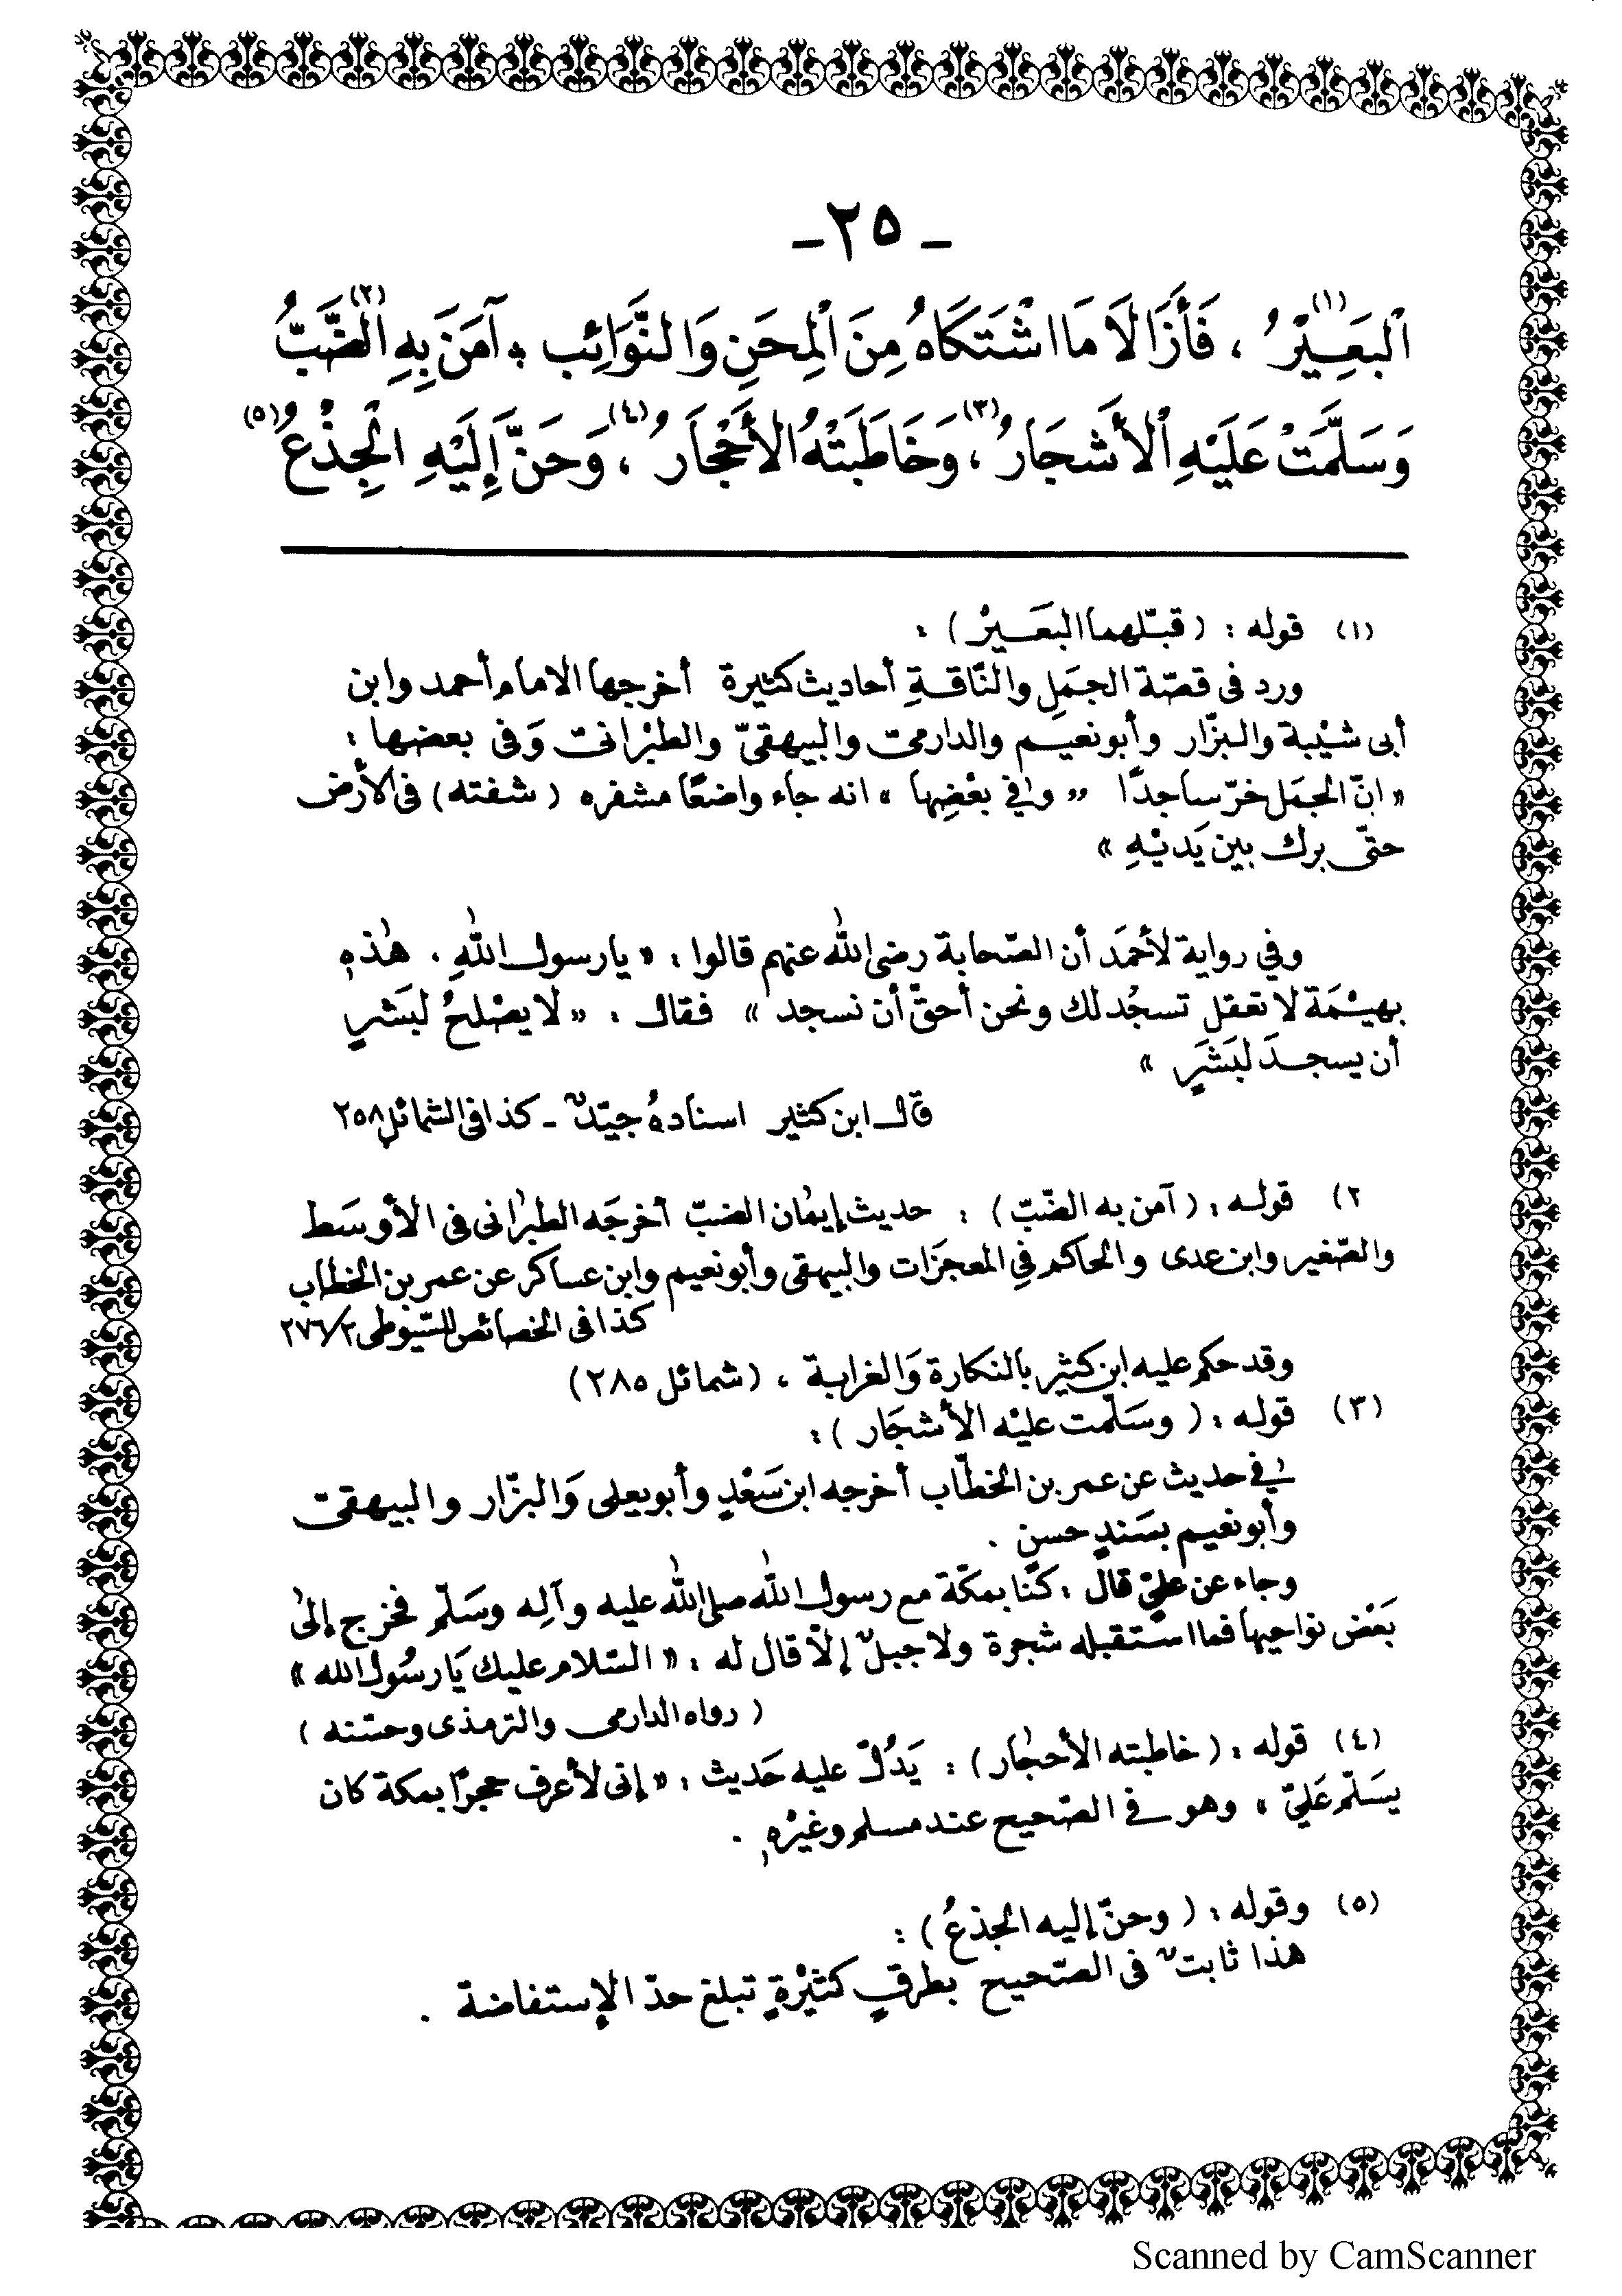 - ٢٥ -
اَلْبَعِيْرُ (١) ، فَأَزَالَا مَا اشْتَكَاهُ مِنَ الْمِحَنِ وَالنَّوَائِبِ * آمَنَ بِهِ الضَّبُّ (٢)
وَسَلَّمَتْ عَلَيْهِ الْأَشْجَارُ (٣) ، وَخَاطَبَتْهُ الْأَحْجَارُ (٤) ، وَحَنَّ إِلَيْهِ الْجِذْعُ (٥)
(١) قوله : ( قبّلهما البَعَيرْ ) :
ورد فى قصّة الجمَلِ والنَّاقةِ أحاديث كثيرة أخرجها الامام أحمد وابن
أبى شيْبة والبزّار وأبونعيم والدارمىّ والبيهقىّ والطبْرانىّ وَفى بعضها :
« انّ الجمَل خرّ ساجدًا ,, وافي بعْضِها » انه جاء واضعًا مشفره ( شفته ) فى الأرض
حتّى برك بين يَديْهِ »
وفي رواية لأحمَد أن الصّحابة رضى الله عنهم قالوا : « يا رسول اللهِ . هٰذهِ
بهيْمَة لا تعقل تسجُد لك ونحن أحقّ أن نسجد » فقال : « لا يصْلحُ لبَشرٍ
أن يسجدَ لبَشَرٍ »
قال ابن كثير اسنادهُ جيّدٌ - كذا فى الشمائل ٢٥٨
٢) قوله : ( آمن به الضّبّ ) : حديث إيمٰان الضبّ أخرجَه الطبرٰانى فى الأوسَط
والصّغير وابن عدى والحاكم في المعجزَات والبيهقى وأبونعيم وابن عساكر عن عمر بن الخطاب
كذا فى الخصائص للسّيوطى ٢٧٦/٢
وقد حكم عليه ابن كثير بالنكارة وَالغرابة ، (شمائل ٢٨٥)
(٣) قوله : ( وسَلّمت عليْه الأشجَار ) :
في حديث عن عمر بن الخطّاب أخرجه ابن سَعْدٍ وأبويعلى وَالبزّار والبيهقىّ
وأبونعيم بسَندٍ حسنٍ .
وجاء عن عليّ قال : كنّا بمكّة مع رسول الله صلى الله عليه وآلِه وسَلّم فخرج إلىٰ
بَعْض نواحيها فما استقبله شجرة ولا جبلٌ إلّا قال له : « السّلام عليك يَا رسُول الله »
( رواه الدارمى والترمذى وحسّنه )
(٤) قوله : ( خاطبته الأحجٰار ) : يَدُلّ عليه حَديث : « إنى لأعرف حجرًا بمكة كان
يسَلّم عَليّ » وهو في الصّحيح عند مسلم وغيْرِه .
(٥) وقوله : ( وحنّ إليه الجذعُ ) :
هذا ثابتٌ فى الصّحيح بطرقٍ كثيْرةٍ تبلغ حدّ الإستفاضة .
Scanned by CamScanner